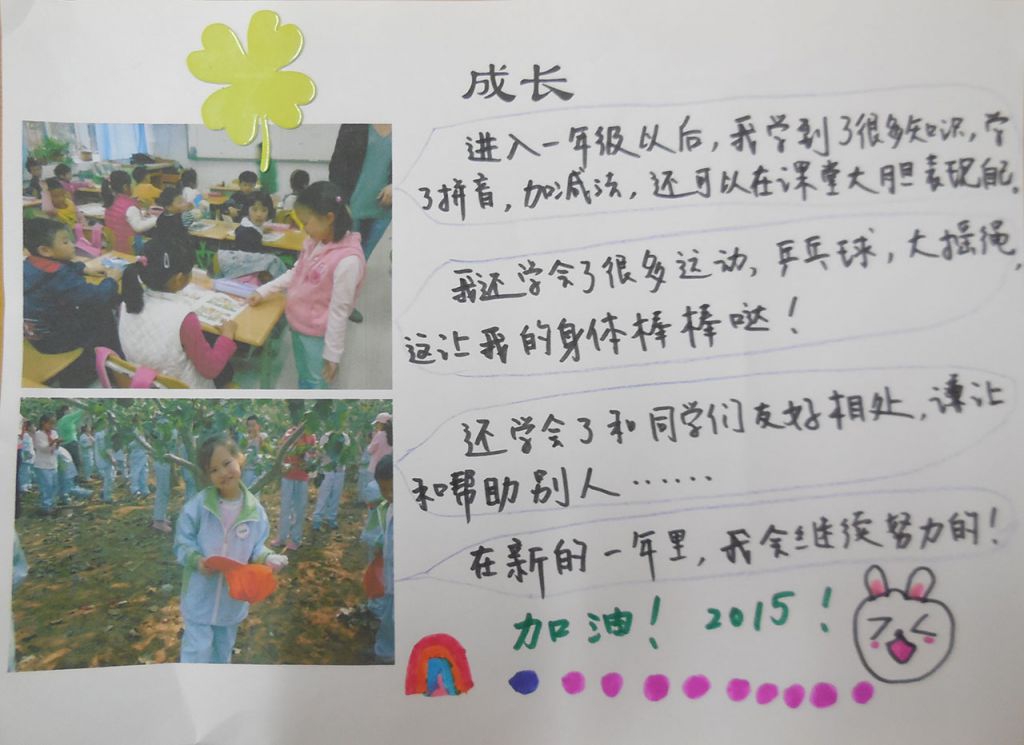 成长
进入一年级以后，我学到了很多知识，学
了拼音，加减法，还可以在课堂大胆表现自己。
我还学会了很多运动，乒乓球，大摇绳，
这让我的身体棒棒哒！
还学会了和同学们友好相处，谦让
和帮助别人……
在新的一年里，我会继续努力的！
加油！2015！